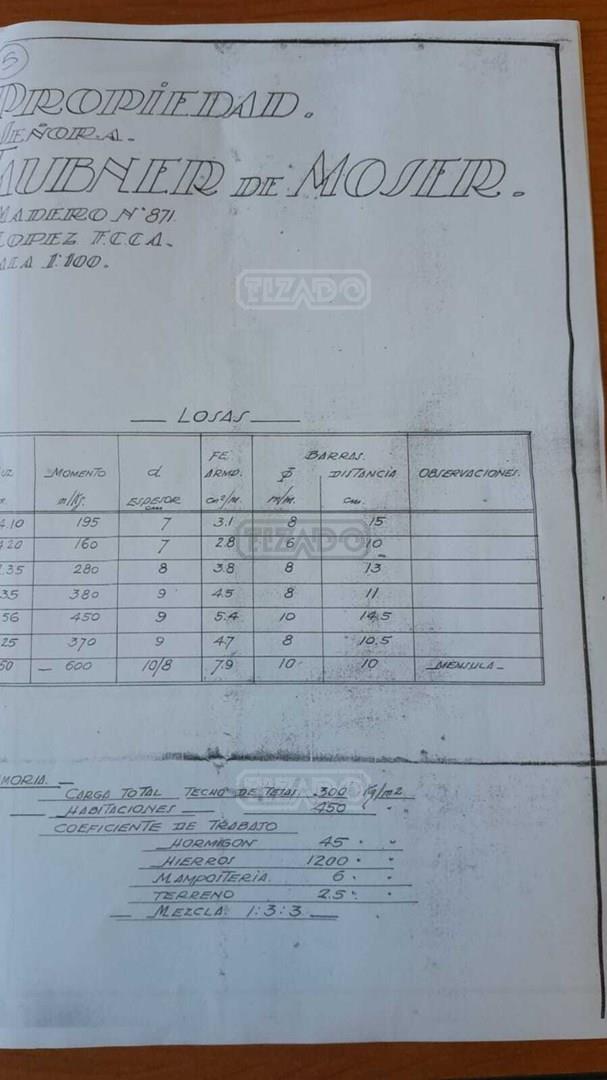 5
PROPIEDAD.
SEÑORA.
TAUBNER DE MOSER.
MADERO Nº 871.
LOPEZ F.C.C.A.
ALA 1:100.
TIZADO
LOSAS
UZ MOMENTO d FE. BARRAS.
ARMD. Φ DISTANCIA OBSERVACIONES.
m. m/Kg. ESPESOR cm²/m. m/m. cm.
cm.
4.10 195 7 3.1 8 15
420 160 7 2.8 6 10
TIZADO
.35 280 8 3.8 8 13
35 380 9 4.5 8 11
56 450 9 5.4 10 14.5
25 370 9 4.7 8 10.5
50 — 600 10/8 7.9 10 10 MENSULA
MORIA.
TIZADO
CARGA TOTAL TECHO DE TEJAS. 300 Kg/m2
HABITACIONES 450 "
COEFICIENTE DE TRABAJO
HORMIGON 45 " "
HIERROS 1200 " "
MAMPOSTERIA. 6 " "
TERRENO 2.5 " "
MEZCLA. 1:3:3